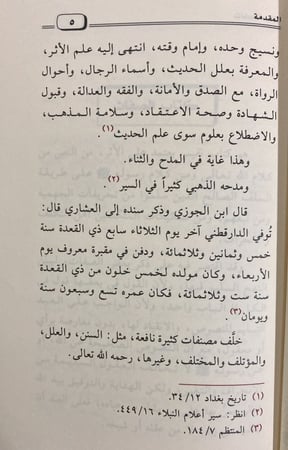 المقدمة
٥
ونسيج وحده، وإمام وقته، انتهى إليه علم الأثر،
والمعرفة بعلل الحديث، وأسماء الرجال، وأحوال
الرواة، مع الصدق والأمانة، والفقه والعدالة، وقبول
الشهادة وصحة الاعتقاد، وسلامة المذهب،
والاضطلاع بعلوم سوى علم الحديث(١).
وهذا غاية في المدح والثناء.
ومدحه الذهبي كثيراً في السير(٢).
قال ابن الجوزي وذكر سنده إلى العشاري قال:
تُوفي الدارقطني آخر يوم الثلاثاء سابع ذي القعدة سنة
خمس وثمانين وثلاثمائة، ودفن في مقبرة معروف يوم
الأربعاء، وكان مولده لخمس خلون من ذي القعدة
سنة ست وثلاثمائة، فكان عمره تسع وسبعون سنة
ويومان(٣).
خلَّف مصنفات كثيرة نافعة، مثل: السنن، والعلل،
والمؤتلف والمختلف، وغيرها، رحمه الله تعالى.
(١) تاريخ بغداد ٣٤/١٢.
(٢) انظر: سير أعلام النبلاء ٤٤٩/١٦.
(٣) المنتظم ١٨٤/٧.